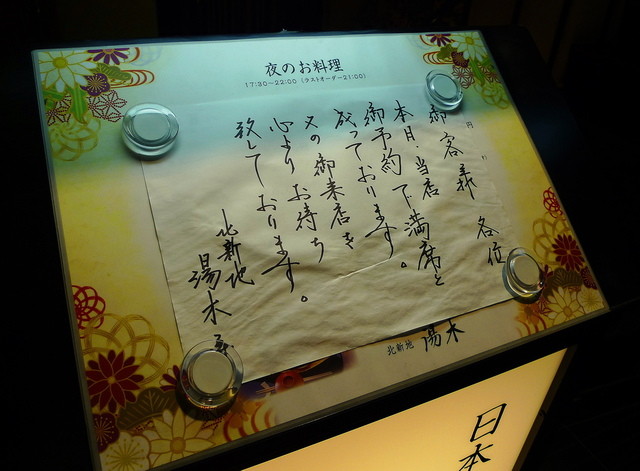 夜のお料理
17:30〜22:00 (ラストオーダー21:00)
御客様 各位
本日、当店
御予約で満席と
成っております。
又の御来店を
心よりお待ち
致しております。
北新地
湯木
北新地 湯木
日本